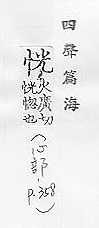 四聲篇海
火廣切
恍惚也
(心部, p.358)